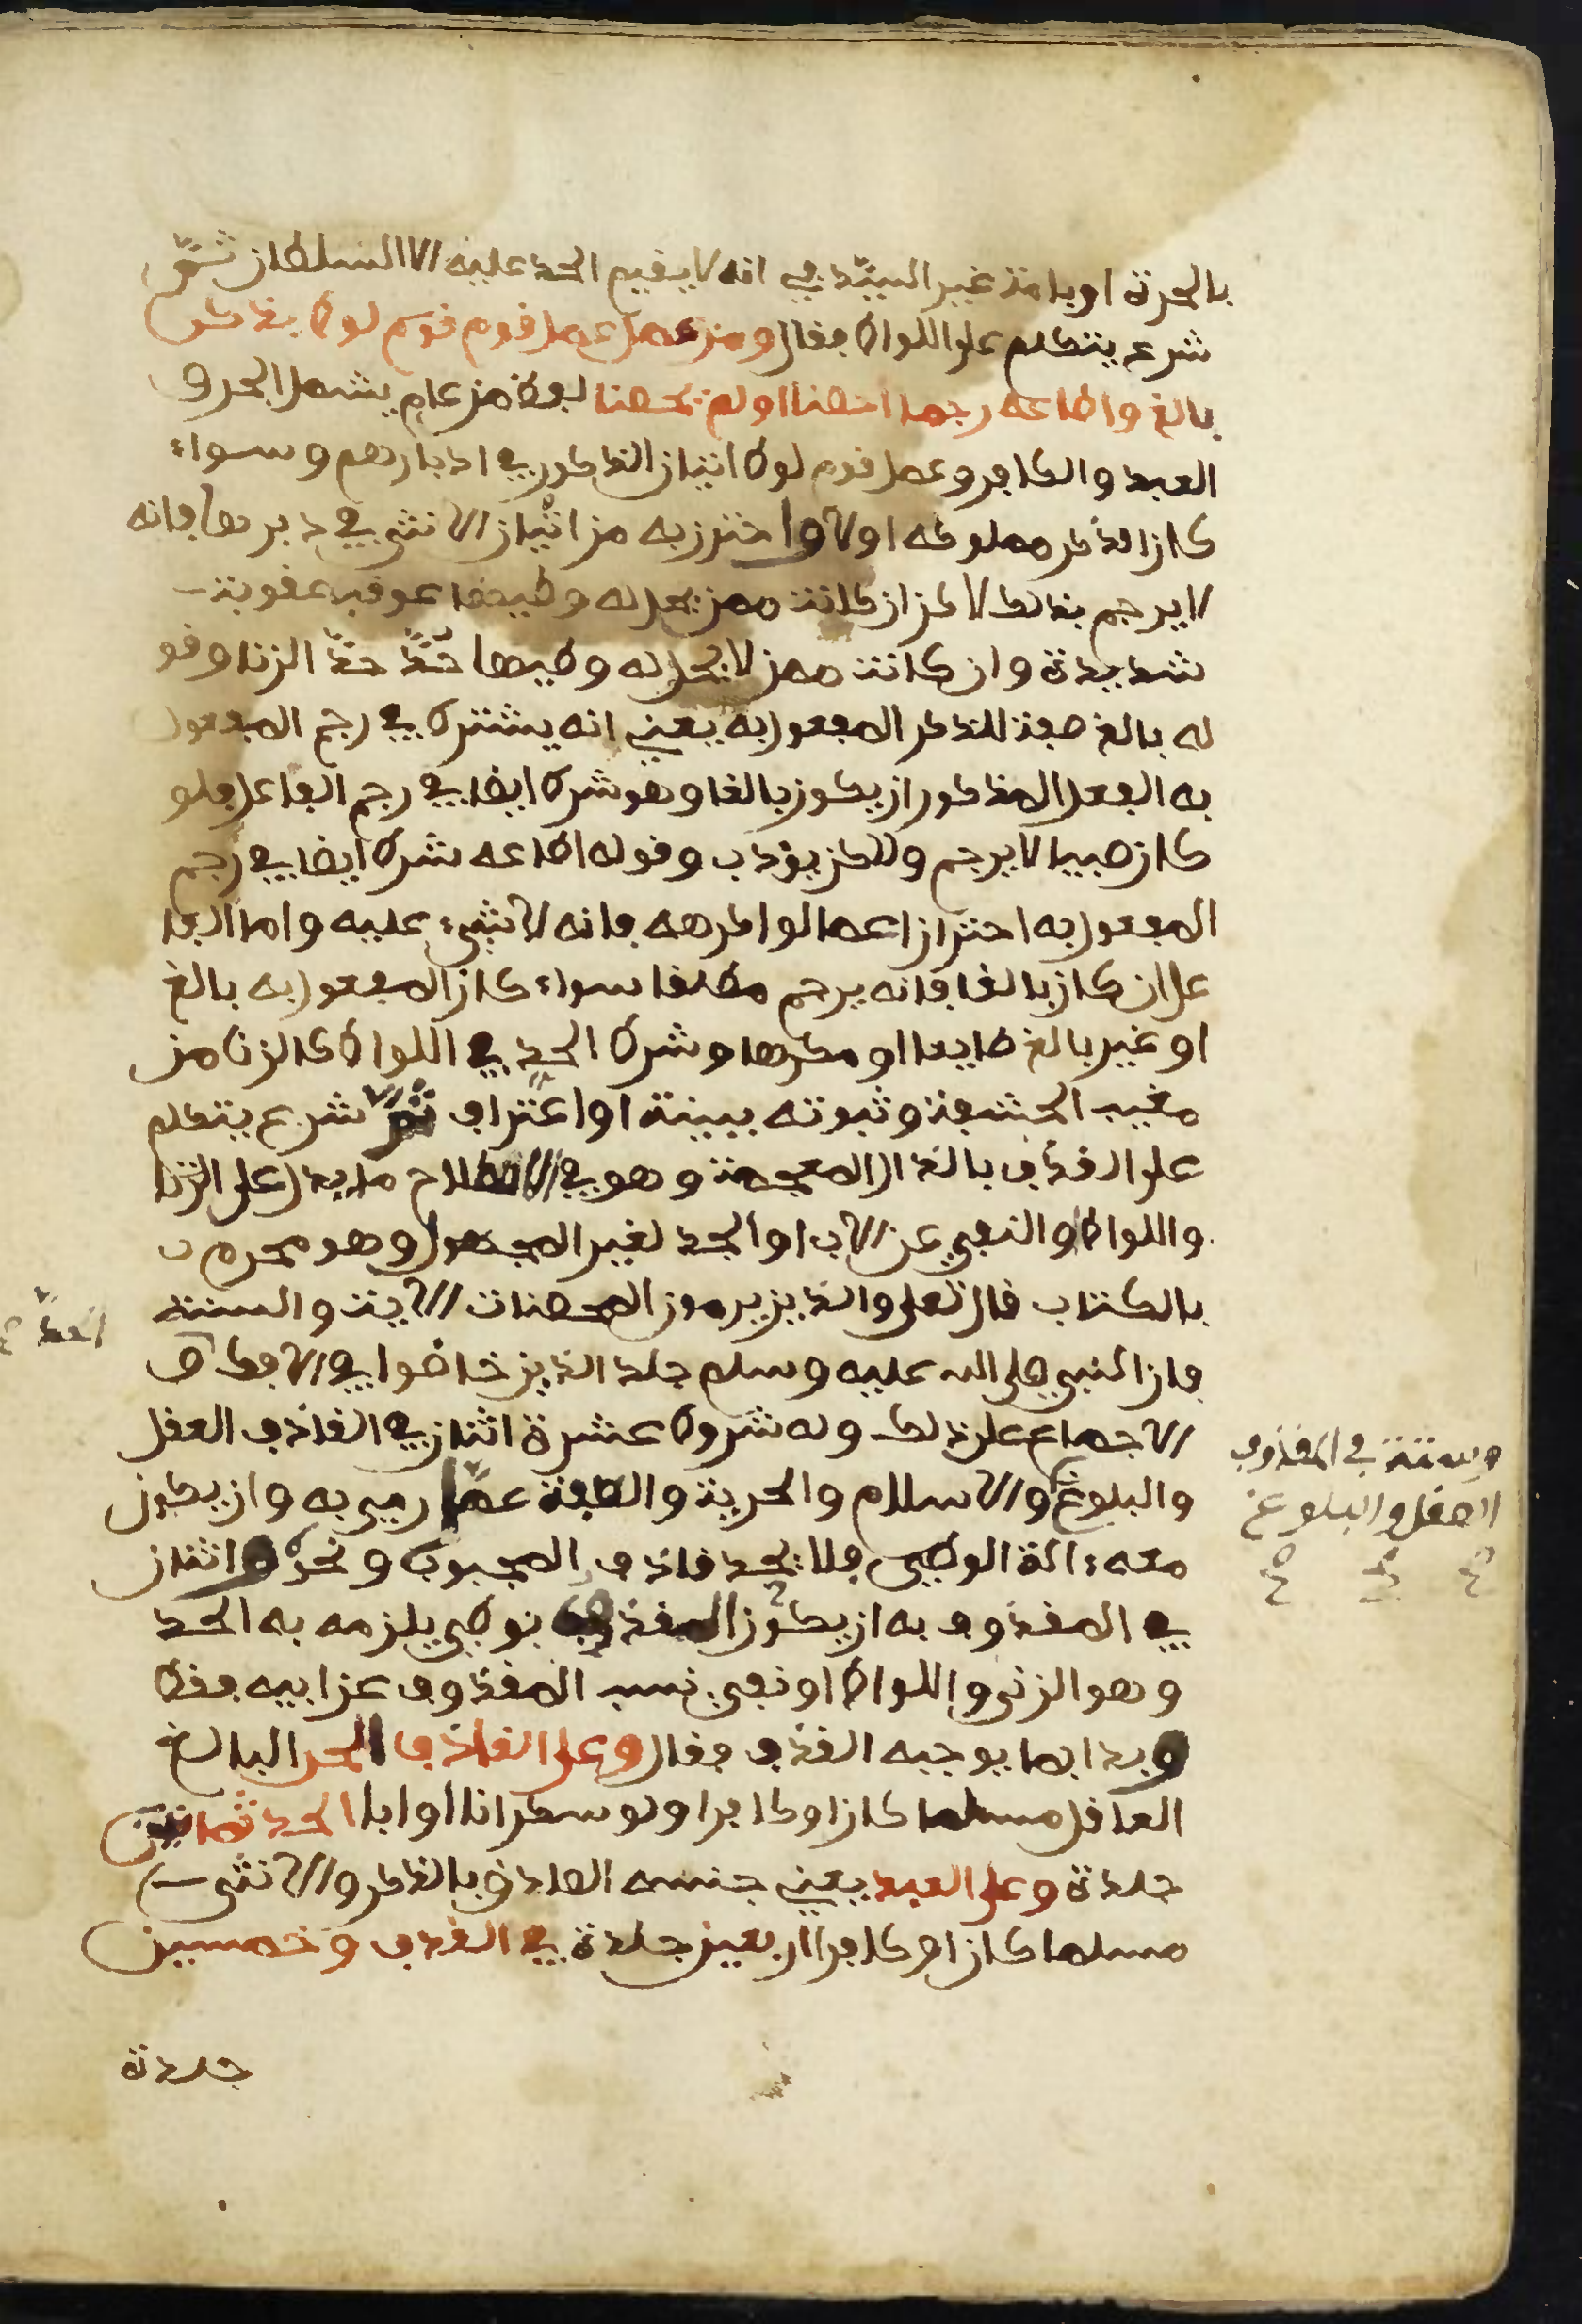 بالحرة او بامة غير السيد في انه لا يقيم الحد عليه الا السلطان ثم
شرع يتكلم على اللواط فقال ومن عمل عمل قوم لوط بذكر
بالغ واطاعه رجما احصنا او لم يحصنا لفظ من عام يشمل الحر و
العبد والكافر وعمل قوم لوط اتيان الذكور في ادبارهم وسواء
كان الذكر مملوكه او لا واحترز به من اتيان الانثى في دبرها فانه
لا يرجم بذلك لاكن ان كانت ممن يحل له وطيها عوقب عقوبة
شديدة وان كانت ممن لا يحل له وطيها حد حد الزنا وقو
له بالغ صفة للذكر المفعول به يعني انه يشترط في رجم المفعول
به الفعل المذكور ان يكون بالغا وهو شرط ايضا في رجم الفاعل فلو
كان صبيا لا يرجم ولكن يؤدب وقوله اطاعه شرط ايضا في رجم
المفعول به احترازا عما لو اكرهه فانه لا شيء عليه واما الفا
عل ان كان بالغا فانه يرجم مطلقا سواء كان المفعول به بالغ
او غير بالغ طايعا او مكرها وشرط الحد في اللواط كالزنا من
مغيب الحشفة وثبوته ببينة او اعتراف ثم شرع يتكلم
على القذف بالذال المعجمة وهو في الاصطلاح ما يدل على الزنا
واللواط والنفي عن الاب او الجد لغير المجهول وهو محرم
بالكتاب قال تعلى والذين يرمون المحصنات الاية والسنة
فان النبي صلى الله عليه وسلم جلد الذين خاضوا في الافك و
الاجماع على ذلك وله شروط عشرة اثنان في القاذف العقل
وستة في المقذوف
العقل والبلوغ
والبلوغ والاسلام والحرية والعفة عما رمي به وان يكون
معه ءالة الوطي فلا يحد قاذف المجبوب ونحوه واثنان
في المقذوف به ان يكون القذف بوطي يلزمه به الحد
وهو الزنى واللواط او نفي نسب المقذوف عن ابيه فقط
وبدا بما يوجبه القذف فقال وعلى القاذف الحر البالغ
العاقل مسلما كان او كافرا ولو سكرانا او ابا الحد ثمانين
جلدة وعلى العبد يعني جنسه الصادق بالذكر والانثى
مسلما كان او كافرا اربعين جلدة في القذف وخمسين
جلدة